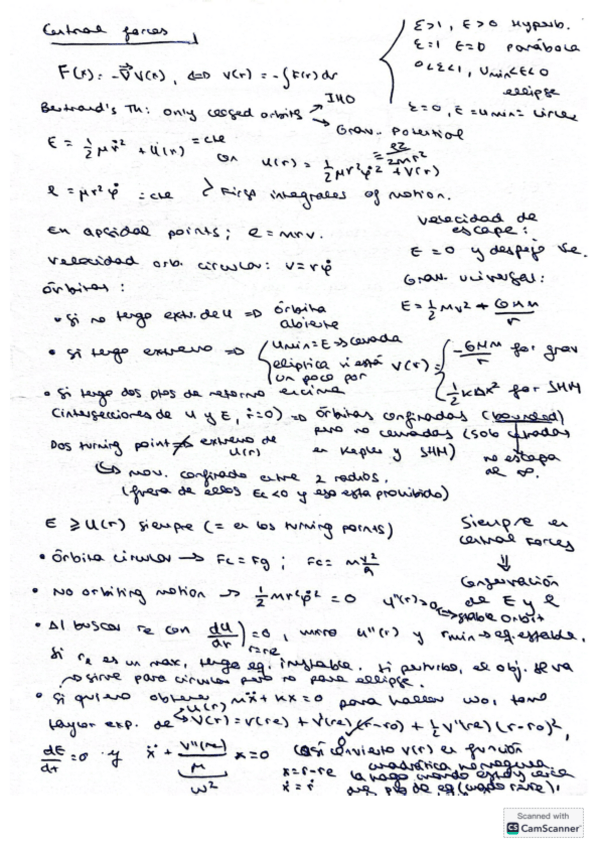 Central forces
ε>1, E>0 Hyperb.
ε=1 E=0 Parábola
0<ε<1, Umin<E<0
ellipse
ε=0, E=Umin= circle
F(r) = -∇V(r), ⇔ V(r) = -∫F(r)dr
Bertrand's Th: only closed orbits → IHO
→ Grav. Potential
E = 1/2 μṙ² + U(r) = cte
con U(r) = 1/2 μr²φ̇² + V(r)
= ℓ²/2mr²
ℓ = μr²φ̇ = cte } First integrales of motion.
En apsidal points; ℓ = mrv.
velocidad orb. circular: v = rφ̇
Velocidad de
escape:
E = 0 y despejo ve.
Grav. universal:
E = 1/2 mv² + GMm/r
Órbitas:
• Si no tengo extr. de U ⇒ órbita
abierta
• Si tengo extremo ⇒ { Umin=E → cerrada
elíptica si está
un poco por
encima
V(r) = { -GMm/r for grav
1/2 kΔx² for SHM
• Si tengo dos ptos de retorno
(intersecciones de U y E, ṙ=0) ⇒ órbitas confinadas (bounded)
pero no cerradas (solo cerradas
en Kepler y SHM)
no escapa
de ∞.
Dos turning point ⇏ extremo de
U(r)
↳ mov. confinado entre 2 radios.
(fuera de ellos Ec<0 y eso esta prohibido)
E ≥ U(r) siempre (= en los turning points)
Siempre en
central forces
⇓
Conservación
de E y ℓ
• Órbita circular → Fc = Fg ; Fc = m v²/R
• No orbiting motion → 1/2 mr²φ̇² = 0
U''(r)>0 ↔ stable orbit
• Al buscar re con dU/dr)r=re = 0, miro U''(r) y rmin → eq. estable.
Si re es un max, tengo eq. inestable. Si perturbo, el obj. se va
→ sirve para círculos pero no para ellipse.
• Si quiero obtener mẍ + kx = 0 para hallar ω₀, tomo
U(r)
taylor exp. de V(r) = V(re) + V'(re)(r-r₀) + 1/2 V''(re)(r-r₀)²,
0
dE/dt = 0 y ẍ + V''(re)/μ x = 0
ω²
(así convierto V(r) en función
cuadrática
x = r-re
ẋ = ṙ
lo hago cuando estoy cerca
del pto de eq
Scanned with
CS CamScanner